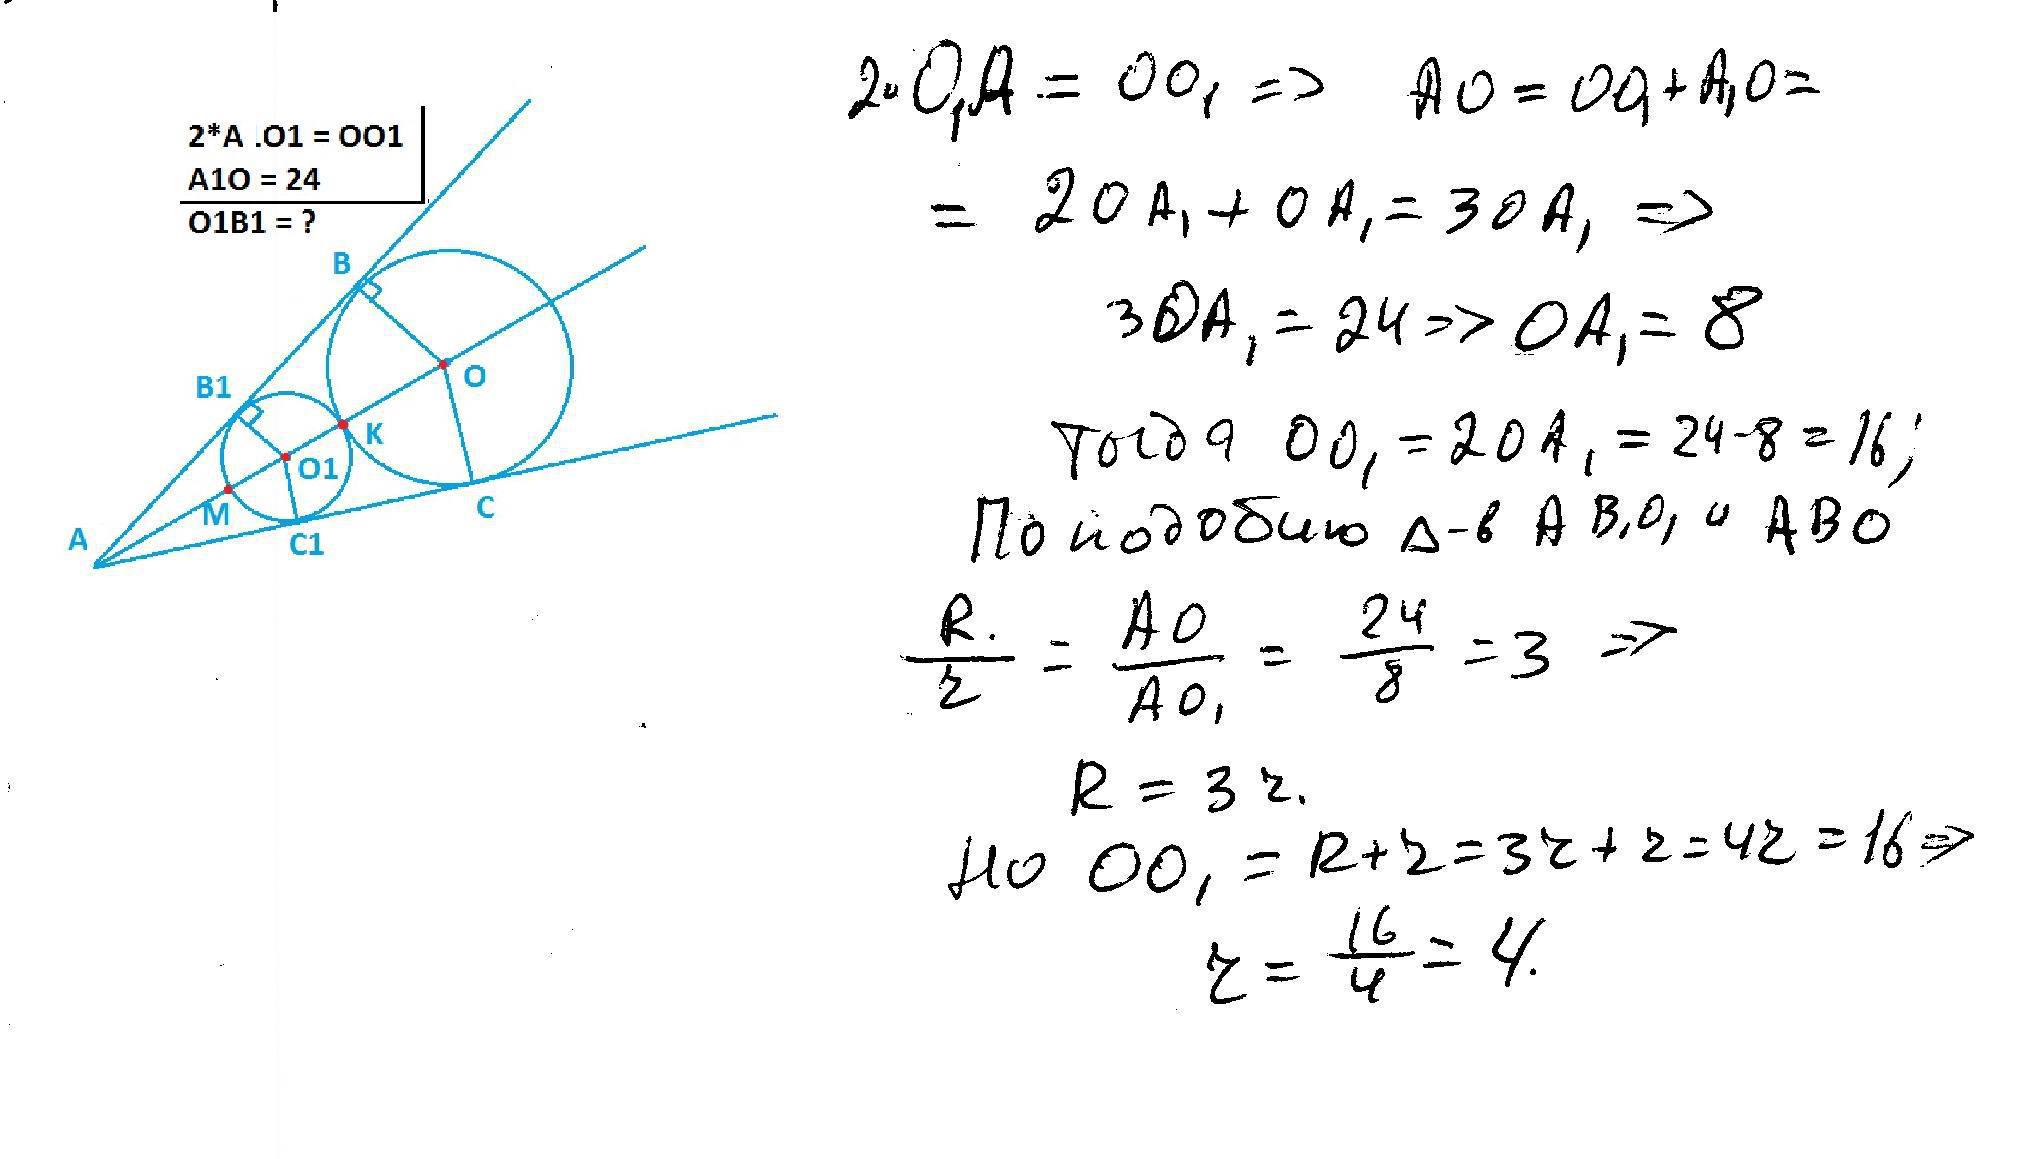 2*A .O1 = OO1
A1O = 24
O1B1 = ?
B
B1
O
K
O1
M
C
A
C1
2·O₁A = OO₁ => AO = OO₁+A₁O=
= 2OA₁ + OA₁ = 3OA₁ =>
3OA₁ = 24 => OA₁ = 8
Тогда OO₁ = 2OA₁ = 24-8 = 16;
По подобию Δ-в AB₁O₁ и ABO
R. / r = AO / AO₁ = 24 / 8 = 3 =>
R = 3 r.
Но OO₁ = R+r = 3r + r = 4r = 16 =>
r = 16 / 4 = 4.